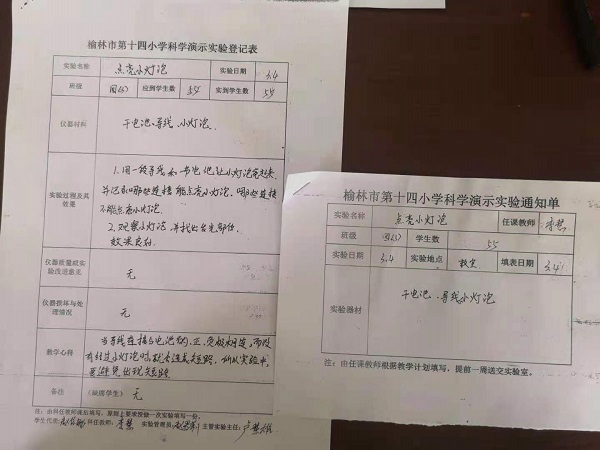 榆林市第十四小学科学演示实验登记表
实验名称 点亮小灯泡 实验日期 3.4
班级 应到学生数 55 实到学生数 55
仪器材料 干电池、导线、小灯泡.
实验过程及其效果
1.用一段导线和一节电池让小灯泡亮起来,
并记录哪些连接能点亮小灯泡,哪些连接
不能点亮小灯泡.
2.观察小灯泡,并找出发光部位.
效果良好.
仪器质量或实验改进意见 无
仪器损坏与处理情况 无
教学心得
当导线连接与电池的正、负极相连,而没
有经过小灯泡时,就会造成短路,所以实验中,
要避免出现短路
备注 (缺席学生) 无
注:由科任教师课后填写,原则上要求按做一次实验填写一份。
学生代表: 科任教师:李慧 实验管理员: 主管实验主任:
榆林市第十四小学科学演示实验通知单
实验名称 点亮小灯泡 任课教师 李慧
班级 学生数 55
实验日期 3.4 实验地点 教室 填表日期 3.4
实验器材 干电池、导线、小灯泡
注:由任课教师根据教学计划填写,提前一周送交实验室。